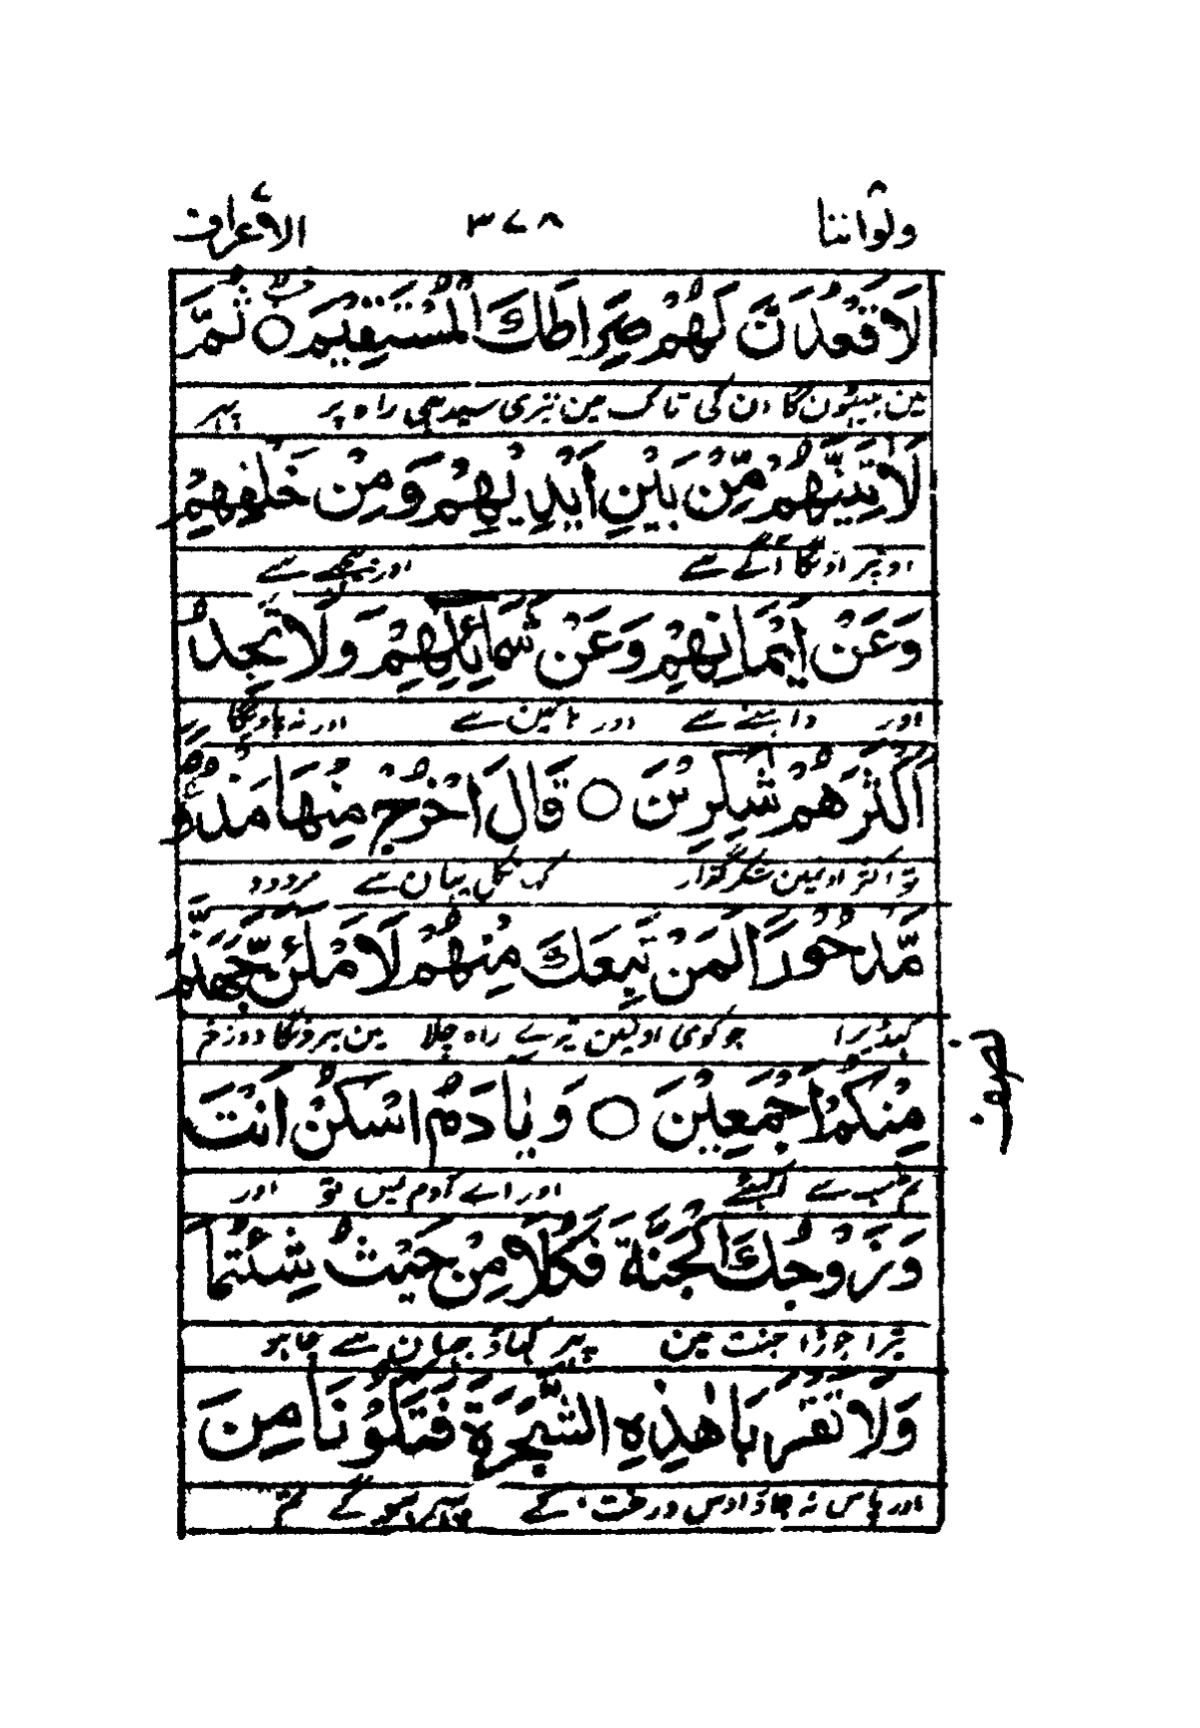 ولواننا ۸ ۳۷۸ الاعراف ۷
لَاَقْعُدَنَّ لَهُمْ صِرَاطَكَ الْمُسْتَقِيْمَ ○ ثُمَّ
مین بیٹھون گا ان کی تاک مین تیری سیدھی راہ پر پہر
لَاٰتِيَنَّهُمْ مِّنْۢ بَيْنِ اَيْدِيْهِمْ وَمِنْ خَلْفِهِمْ
اونپر اونگا آگے سے اور پیچھے سے
وَعَنْ اَيْمَانِهِمْ وَعَنْ شَمَآئِلِهِمْ وَلَا تَجِدُ
اور داہنے سے اور بائین سے اور نہ پاویگا
اَكْثَرَهُمْ شٰكِرِيْنَ ○ قَالَ اخْرُجْ مِنْهَا مَذْءُوْ
تو اکثر اونمین شکرگذار کہا نکل یہان سے مردود
مَّدْحُوْرًا لَمَنْ تَبِعَكَ مِنْهُمْ لَاَمْلَئَنَّ جَهَنَّمَ
کہدیڑا جو کوئی اونمین تیرے راہ چلا مین بہرونگا دوزخ
مِنْكُمْ اَجْمَعِيْنَ ○ وَيٰۤاٰدَمُ اسْكُنْ اَنْتَ
تم سب سے اکہٹے اور اے آدم بس تو اور
وَزَوْجُكَ الْجَنَّةَ فَكُلَا مِنْ حَيْثُ شِئْتُمَا
تیرا جوڑا جنت مین پہر کہاؤ جہان سے چاہو
وَلَا تَقْرَبَا هٰذِهِ الشَّجَرَةَ فَتَكُوْنَا مِنَ
اور پاس نہ جاؤ اوس درخت کے پہر ہوگے تم
نصف